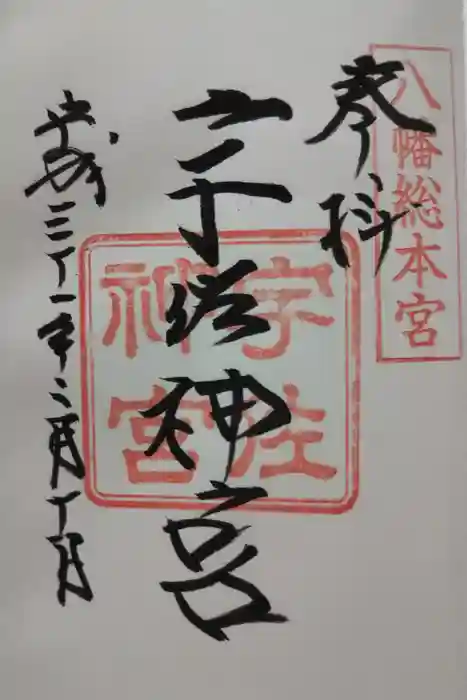 八幡総本宮
奉拝
宇佐神宮
宇佐
神宮
平成三十一年二月十日